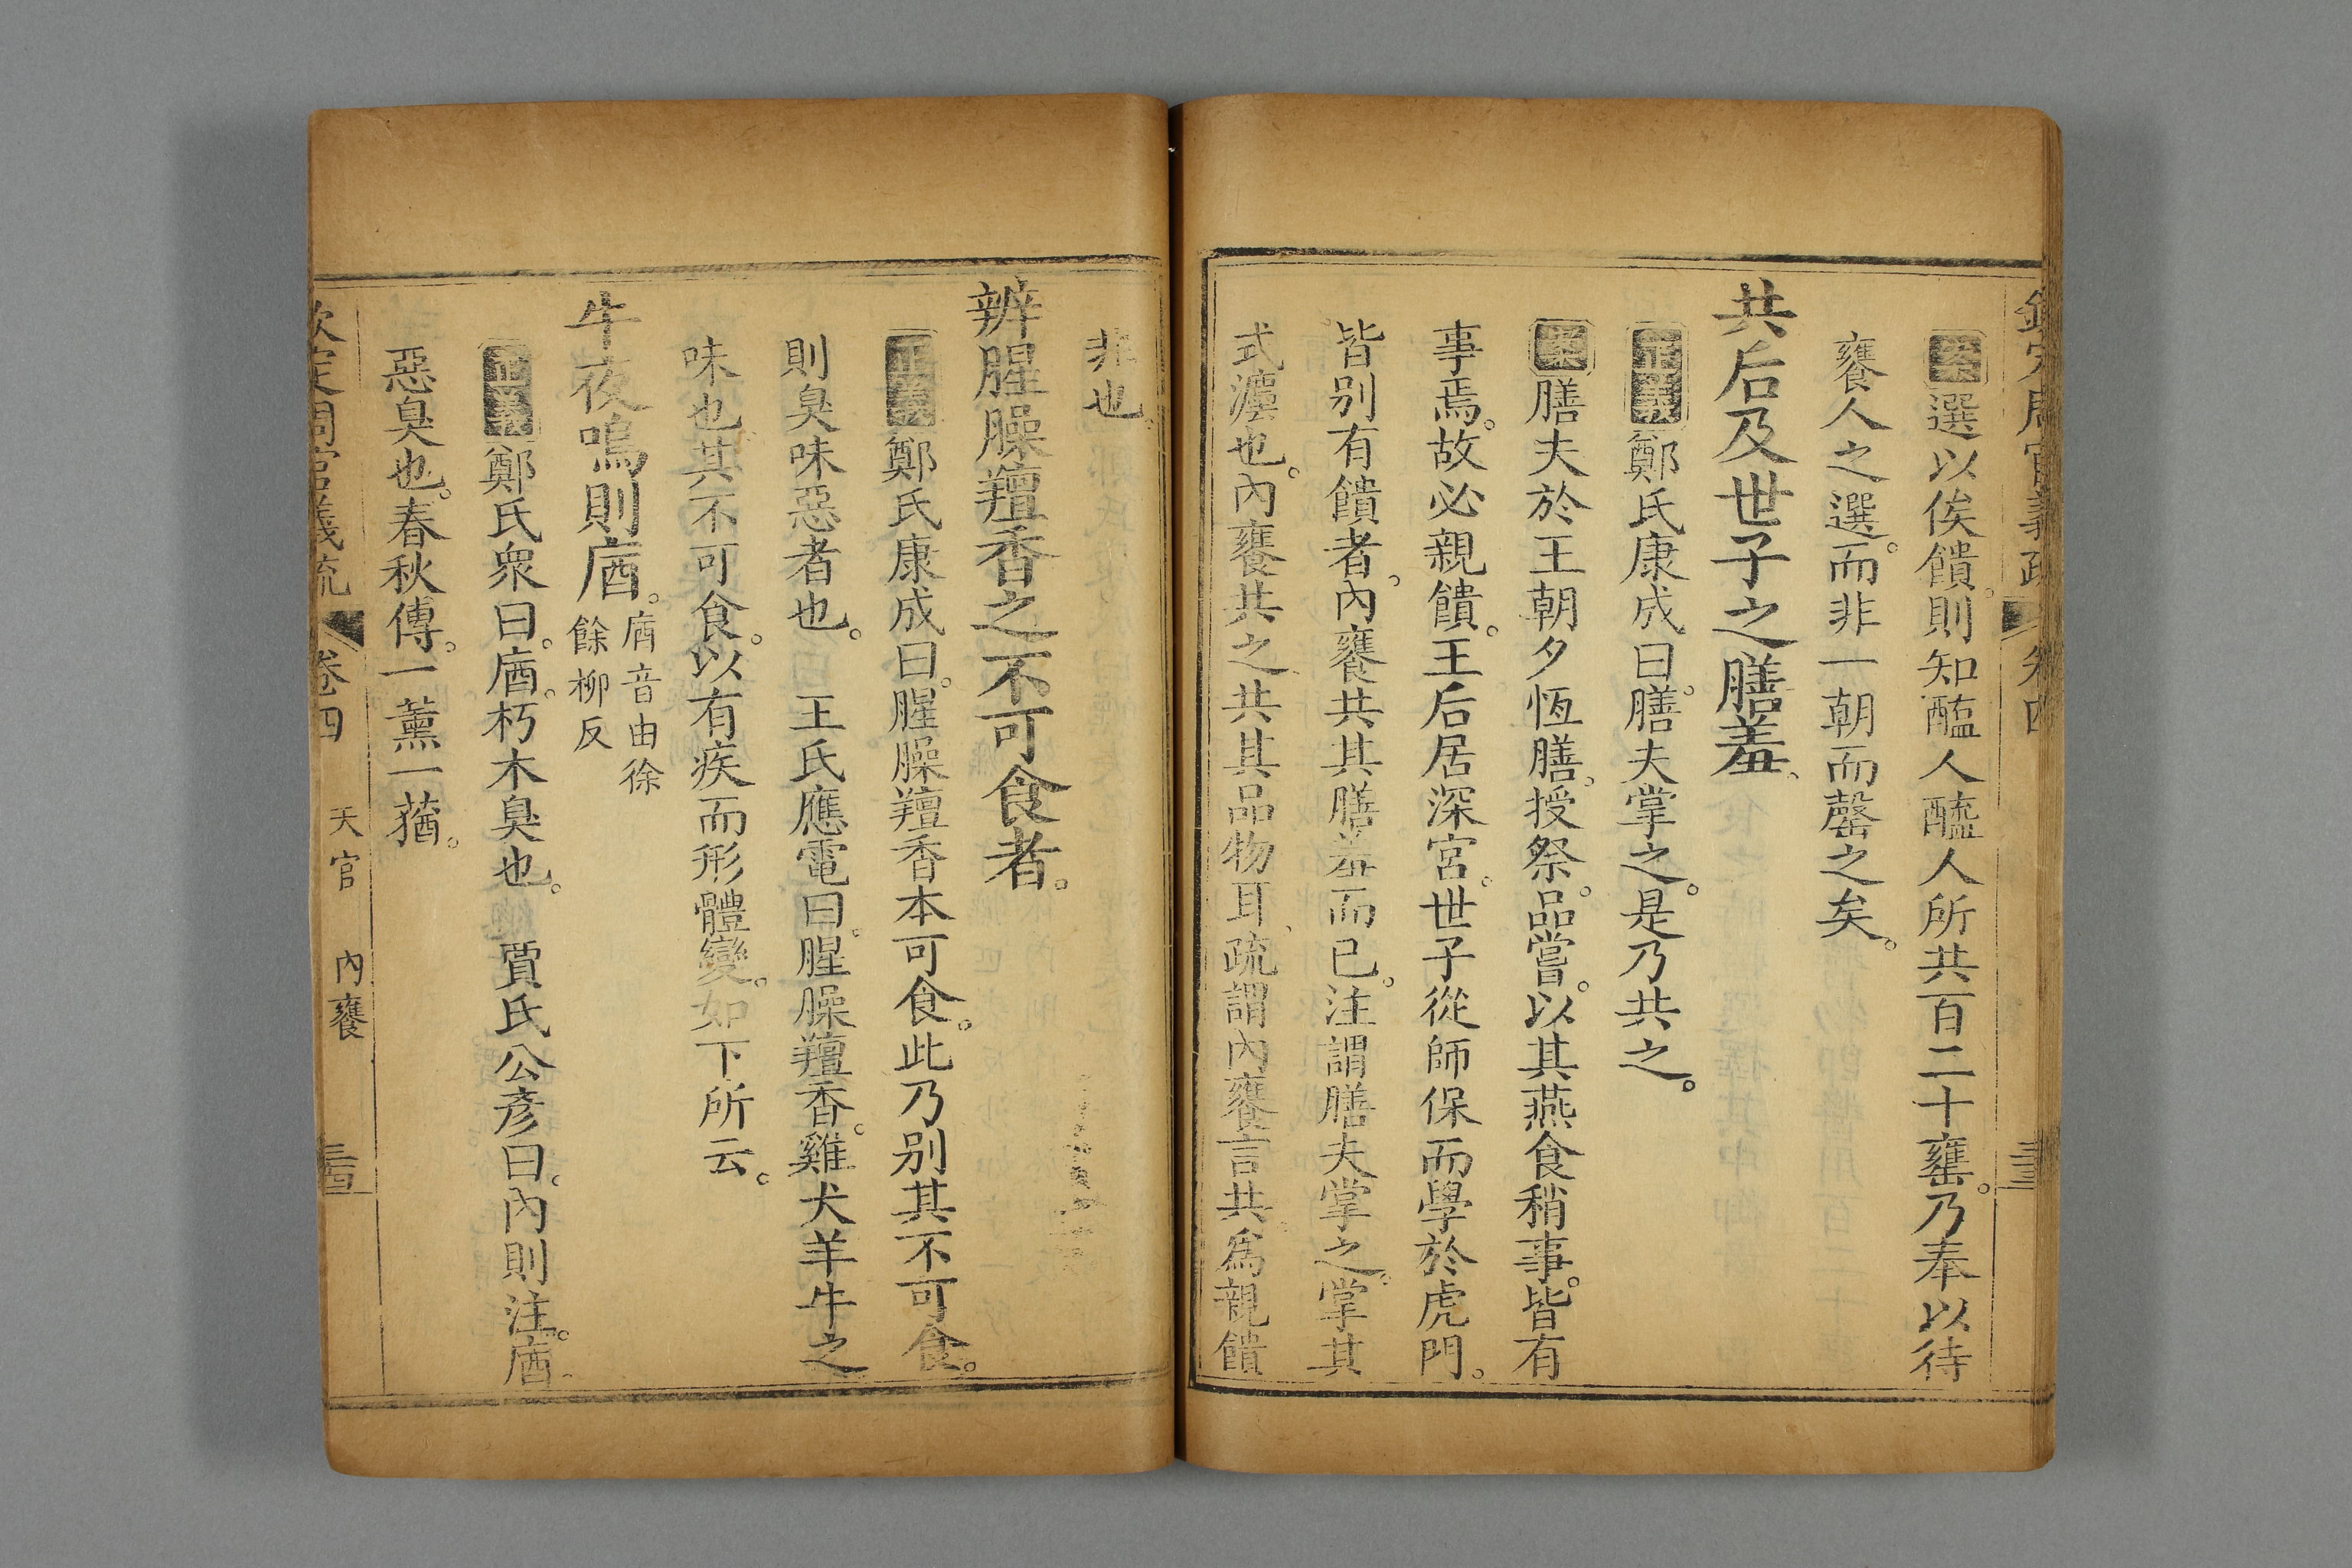 案選以俟饋。則知醢人醯人所共百二十罋。乃奉以待
饔人之選。而非一朝而罄之矣。
共后及世子之膳羞、
正義鄭氏康成曰。膳夫掌之。是乃共之。
案膳夫於王朝夕恆膳、授祭。品嘗。以其燕食稍事。皆有
事焉。故必親饋。王后居深宮。世子從師保而學於虎門。
皆别有饋者、內饔共其膳羞而已。注謂膳夫掌之。掌其
式灋也。內饔共之、共其品物耳、疏謂內饔言共爲親饋
非也。
辨腥臊羶香之不可食者。
正義鄭氏康成曰。腥臊羶香本可食。此乃别其不可食。
則臭味惡者也。 王氏應電曰。腥臊羶香。雞犬羊牛之
味也。其不可食。以有疾而形體變。如下所云。
牛夜鳴則庮。庮音由徐
餘柳反
正義鄭氏眾曰。庮。朽木臭也。 賈氏公彥曰。內則注。庮。
惡臭也。春秋傳。一薰一蕕。
欽定周官義疏 卷四 天官 內饔